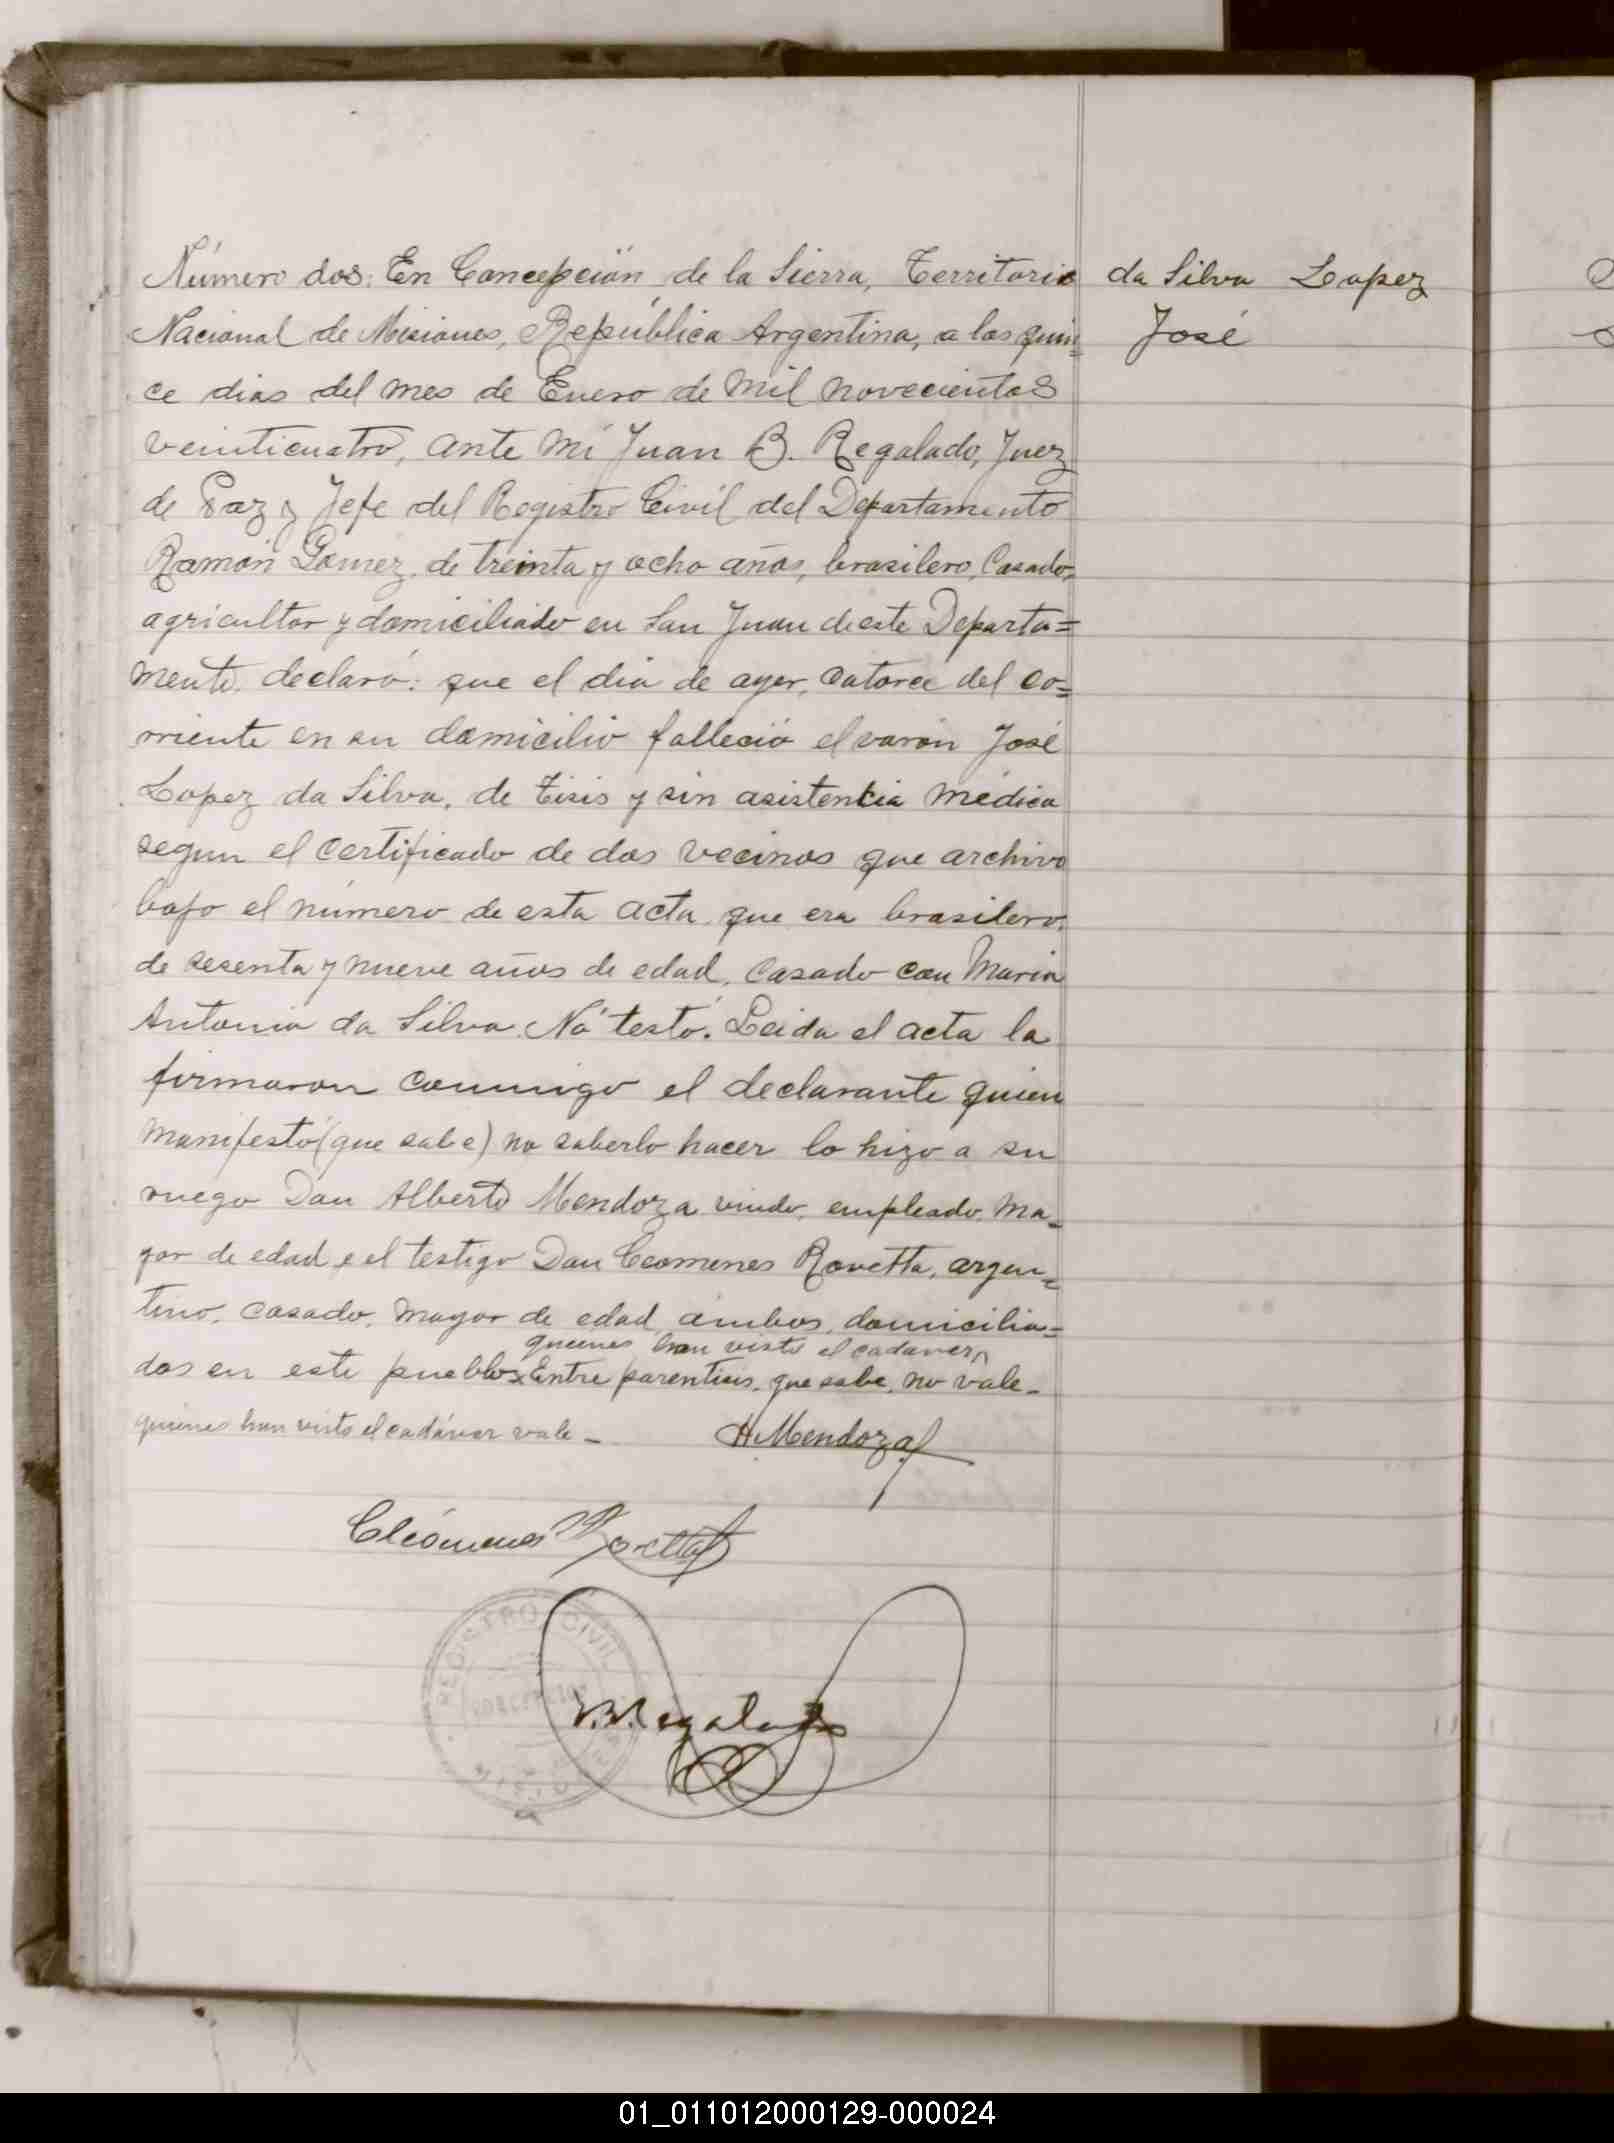 Número dos: En Concepción de la Sierra, Territorio
Nacional de Misiones, República Argentina, a los quin=
ce dias del mes de Enero de mil novecientos
veinticuatro, ante mi Juan B. Regalado, Juez
de Paz y Jefe del Registro Civil del Departamento
Ramón Gomez, de treinta y ocho años, brasilero, Casado,
agricultor y domiciliado en San Juan de este Departa=
mento, declaró: que el dia de ayer, catorce del co=
rriente en su domicilio falleció el varón José
Lopez da Silva, de tisis y sin asistencia médica
segun el certificado de dos vecinos que archivo
bajo el número de esta acta, que era brasilero,
de sesenta y nueve años de edad, Casado con Maria
Antonia da Silva. Nó testó. Leida el acta la
firmaron conmigo el declarante quien
manifestó (que sabe) no saberlo hacer lo hizo a su
ruego Don Alberto Mendoza viudo, empleado, ma=
yor de edad, e el testigo Don Cleomenes Rovetta, argen=
tino, casado, mayor de edad, ambos, domicilia=
quienes han visto el cadáver
dos en este pueblo x Entre parentisis, que sabe, no vale -
quienes han visto el cadáver vale -
A. Mendoza
Cleómenes Rovetta
REGISTRO CIVIL
CONCEPCION
MISIONES
J.B. Regalado
da Silva Lopez
José
01_011012000129-000024